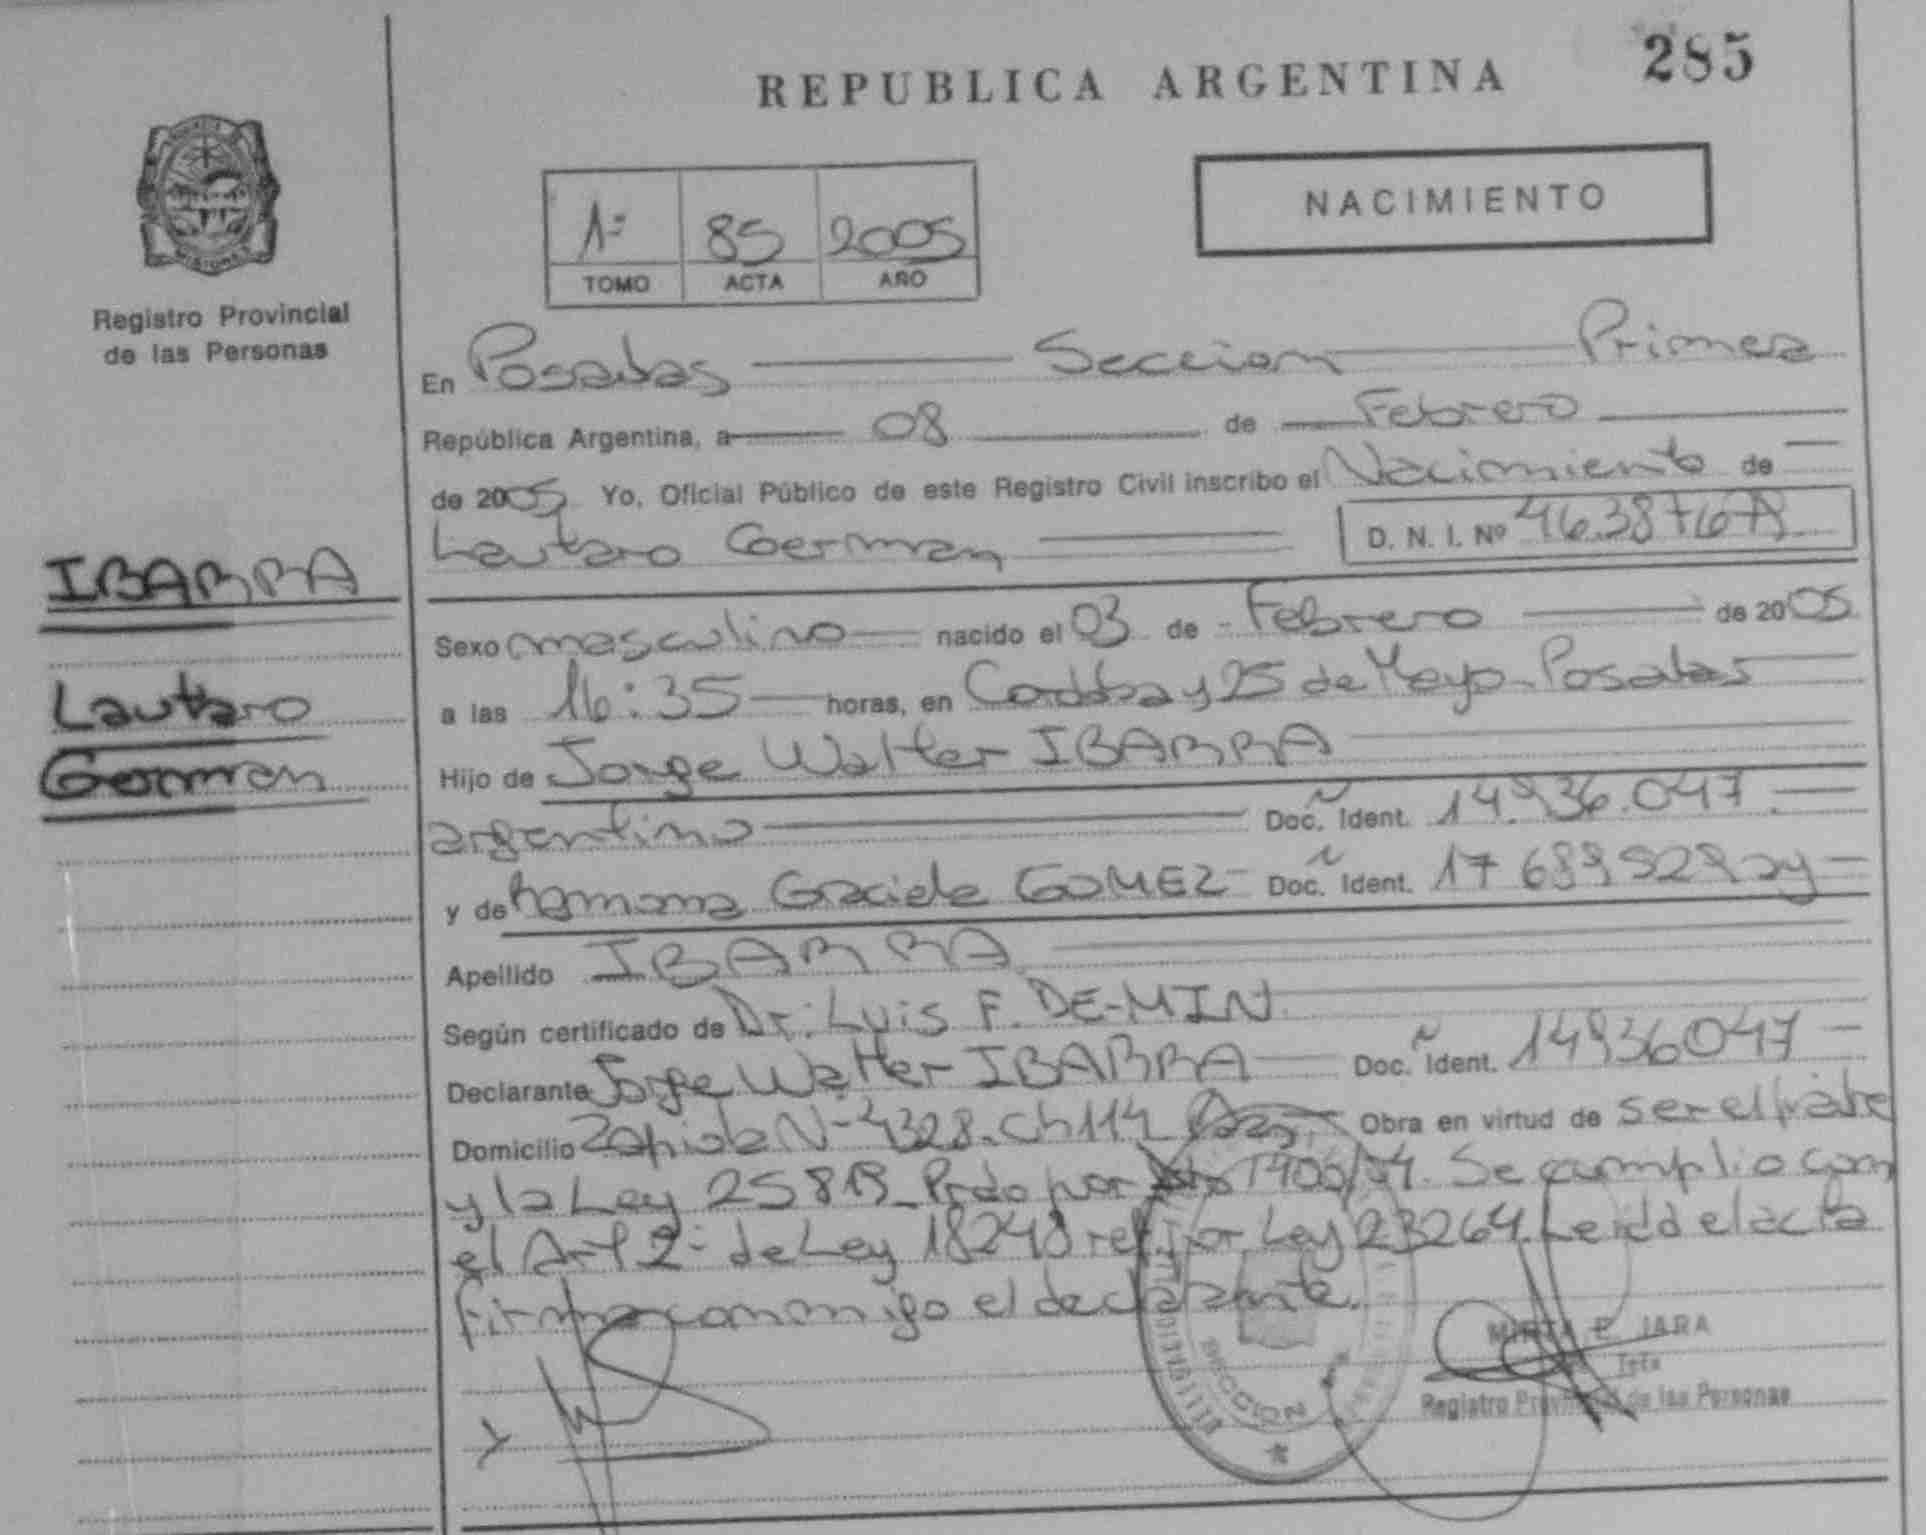 285
REPUBLICA ARGENTINA
NACIMIENTO
1º 85 2005
TOMO ACTA AÑO
Registro Provincial
de las Personas
IBARRA
Lautaro
German
En Posadas Seccion Primera
República Argentina, a 08 de Febrero
de 2005 Yo, Oficial Público de este Registro Civil inscribo el Nacimiento de
Lautaro German D. N. I. Nº
Sexo masculino nacido el 03 de Febrero de 2005
a las 16:35 horas, en Cordoba y 25 de Mayo-Posadas
Hijo de Jorge Walter IBARRA
argentino Doc. Ident. 14.936.047
y de Ramona Graciela GOMEZ Doc. Ident. 17
Apellido IBARRA
Según certificado de Dr. Luis F. DE-MIN
Declarante Jorge Walter IBARRA Doc. Ident. 14936047
Domicilio Zapiola N-4328. Ch 114 Obra en virtud de ser el padre
y la Ley Prdo por Se cumplio con
el Art 2- de Ley 18248 ref. por Ley 23264. Leida el acta
firma conmigo el declarante.
SECCION
MIRTA E. JARA
Jefa
Registro Provincial de las Personas